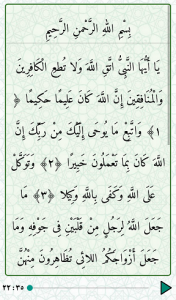 بِسْمِ اللَّهِ الرَّحْمَنِ الرَّحِيمِ
يَا أَيُّهَا النَّبِيُّ اتَّقِ اللَّهَ وَلَا تُطِعِ الْكَافِرِينَ
وَالْمُنَافِقِينَ إِنَّ اللَّهَ كَانَ عَلِيمًا حَكِيمًا ﴿
١﴾ وَاتَّبِعْ مَا يُوحَى إِلَيْكَ مِنْ رَبِّكَ إِنَّ
اللَّهَ كَانَ بِمَا تَعْمَلُونَ خَبِيرًا ﴿٢﴾ وَتَوَكَّلْ
عَلَى اللَّهِ وَكَفَى بِاللَّهِ وَكِيلًا ﴿٣﴾ مَا
جَعَلَ اللَّهُ لِرَجُلٍ مِنْ قَلْبَيْنِ فِي جَوْفِهِ وَمَا
جَعَلَ أَزْوَاجَكُمُ اللَّائِي تُظَاهِرُونَ مِنْهُنَّ
٢٢:٣٥